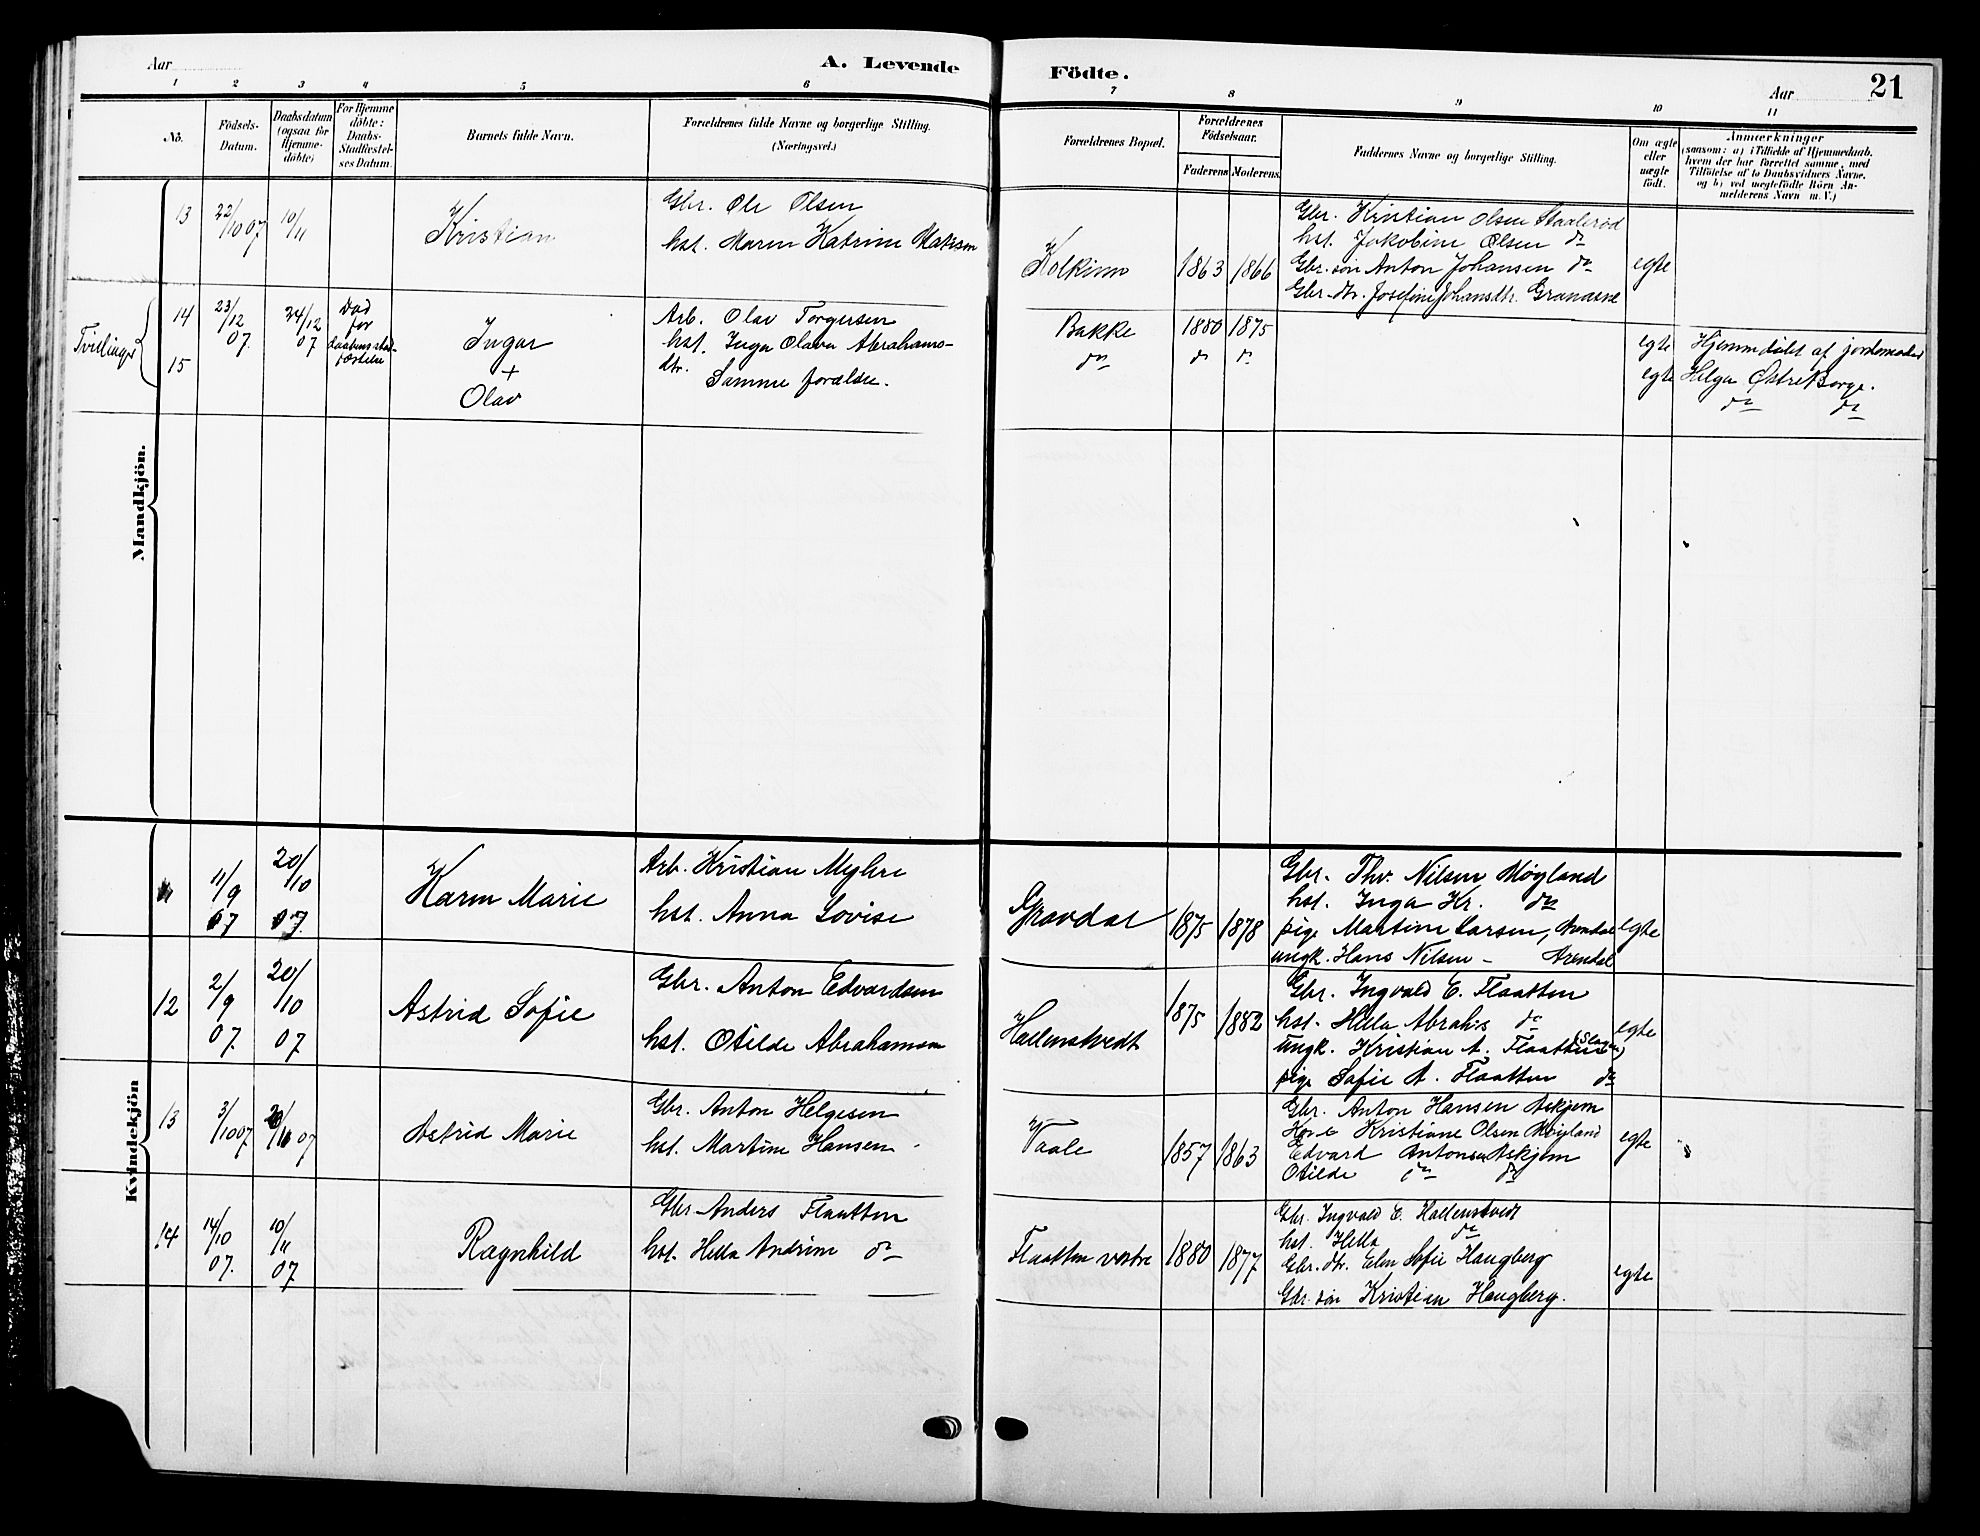 Aar
A. Levende
Födte.
Aar
21
1 2 3 4 5 6 7 8 9 10 11
No.
Födsels-Datum.
Daabsdatum (ogsaa for Hjemme-döbte)
For Hjemme döbte: Daabs-Stadfæstel-ses Datum.
Barnets fulde Navn.
Forældrenes fulde Navne og borgerlige Stilling.
(Næringsvei.)
Forældrenes Bopæl.
Forældrenes Födselsaar.
Faderens
Moderens
Faddernes Navne og borgerlige Stilling.
Om ægte eller uægte födt.
Anmærkninger
(saasom: a) i Tilfælde af Hjemmedaab, hvem der har forrettet samme, med Tilföielse af to Daabsvidners Navne, og b) ved uægtefödte Börn An-melderens Navn m. V.)
Mandkjön.
13 22/10 07 10/11 Kristian
Gbr. Ole Olsen
hst. Maren Katrine
Kolkinn 1863 1866
Gbr. Kristian Olsen
hst. Jakobine Olsen do
Gbr. søn Anton Johansen do
Gbr. dtr. Josefine Johansdtr. Granaasne
egte
Tvillinger
14 23/12 07. 24/12 07 Död før daabens stad-fæstelse
Ingar
+
15 Olav
Arb. Olav Torgersen
hst. Inga Olava Abrahams-
dtr.
Samme forældre.
Bakke 1880 1875
do do do
egte Hjemmedøbt af jordemoder
egte Helga Østre Borge.
do do
Kvindekjön
11/9 07 20/10 07. Karen Marie
Arb. Kristian Myhre
hst. Anna Lovise
Gravdal 1875 1878
Gbr. Thv. Nilsen Høyland
hst. Inga Kr. do
pige Martine Larsen, Arendal
ungk. Hans Nilsen - Arendal
egte
12 2/9 07. 20/10 07 Astrid Sofie
Gbr. Anton Edvardsen
hst. Otilde Abrahamsen
Hallenstvedt 1875 1882
Gbr. Ingvald E. Flaatten
hst. Hella Abrah.s do
Ungk. Kristian A. Flaatten (Slagen)
pige Sofie A. Flaatten do
egte
13 3/10 07 20/10 07 Astrid Marie
Gbr. Anton Helgesen
hst. Martine Hansen
Vaale 1857 1863
Gbr. Anton Hansen Askjem
Kone Kristiane Olsen Høigland
Edvard Antonsen Askjem
Otilde do do
egte
14 14/10 07. 10/11 07 Ragnhild
Gbr Anders Flaatten
hst. Hella Andrine do
Flaatten vestre 1880 1877
Gbr. Ingvald E. Hallenstvedt
hst. Hella do
Gbr. dtr. Elen Sofie Haugberg
Gbr. søn Kristian Haugberg.
egte